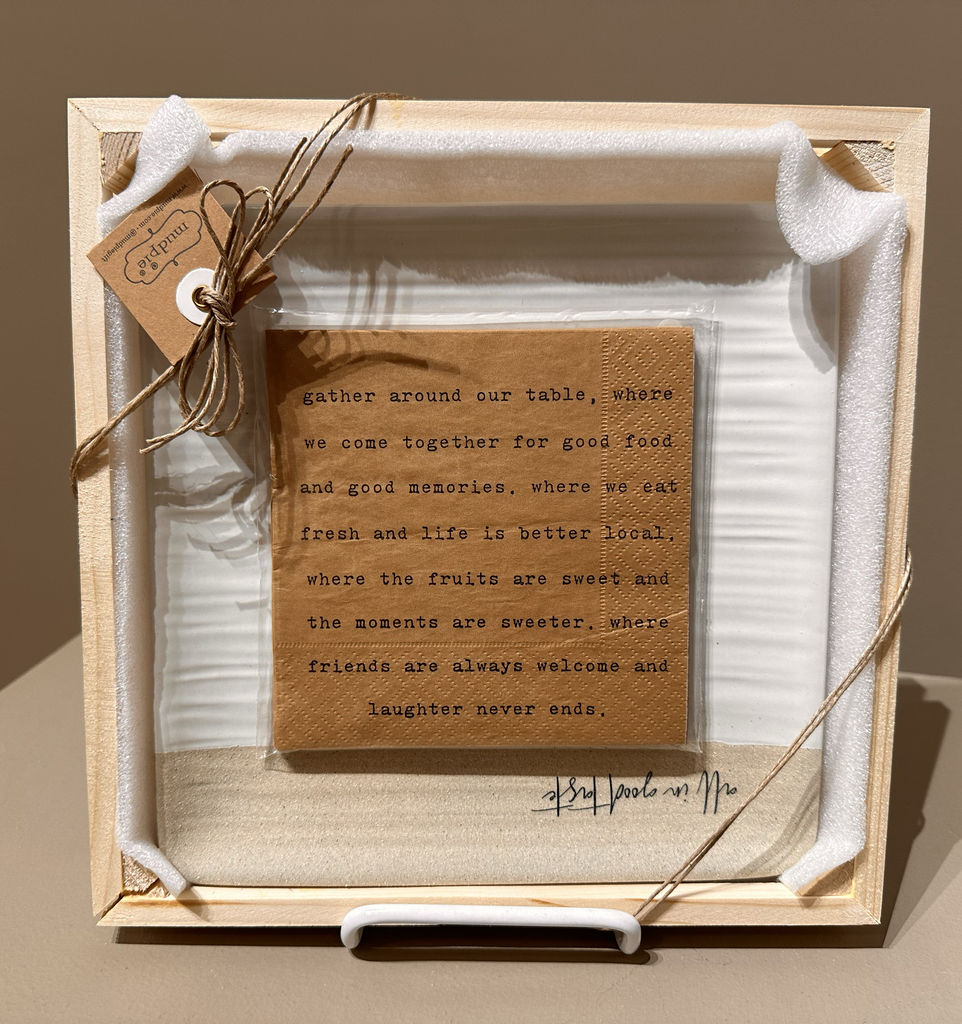 www.mudpie.com • @mudpiegift
mudpie
gather around our table, where
we come together for good food
and good memories. where we eat
fresh and life is better local,
where the fruits are sweet and
the moments are sweeter. where
friends are always welcome and
laughter never ends.
all in good taste